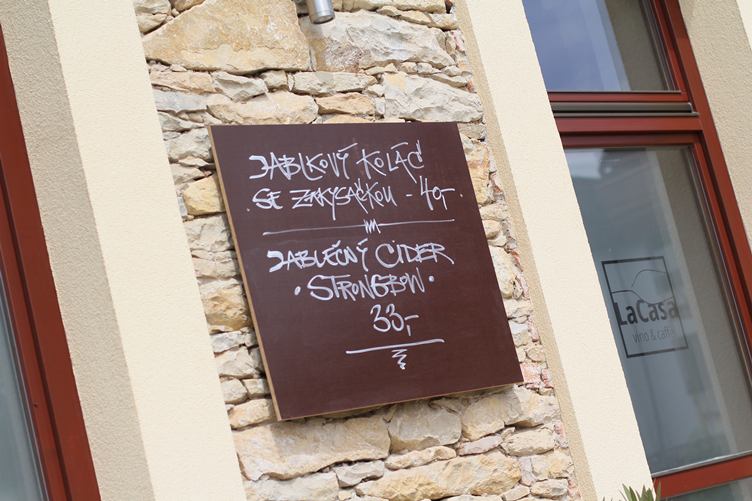 JABLKOVÝ KOLÁČ
SE ZAKYSAČKOU - 40,-
JABLEČNÝ CIDER
• STRONGBOW •
33,-
LaCasa
vino & caffé